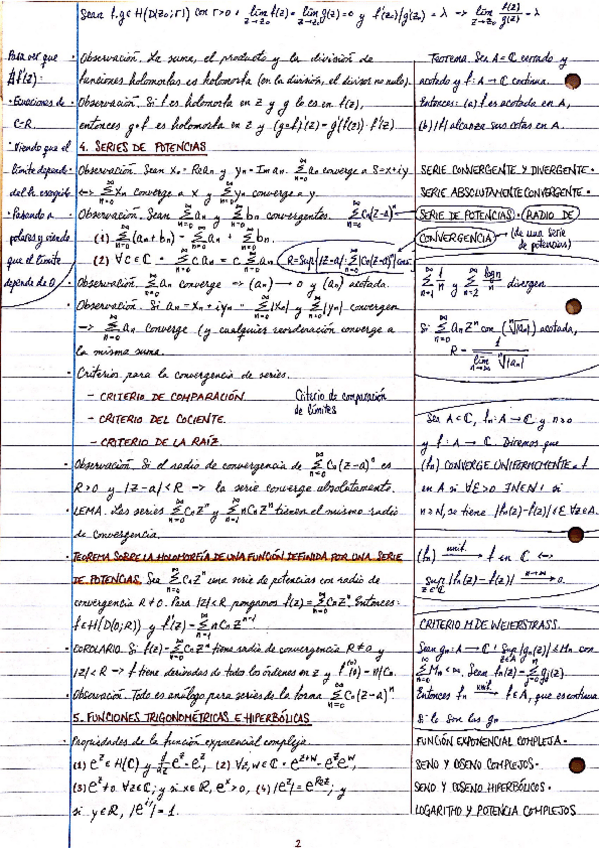 Sean f, g ∈ H(D(z₀; r)) con r>0 : lim_{z→z₀} f(z) = lim_{z→z₀} g(z) = 0 y f'(z₀)/g'(z₀) = λ => lim_{z→z₀} f(z)/g(z) = λ
Para ver que
∄ f'(z):
· Ecuaciones de
C-R.
· Viendo que el
límite depende
del h escogido
· Pasando a
polares y viendo
que el límite
depende de θ.
· Observación. La suma, el producto y la división de
funciones holomorfas es holomorfa (en la división, el divisor no nulo).
· Observación. Si f es holomorfa en z y g lo es en f(z),
entonces g∘f es holomorfa en z y (g∘f)'(z) = g'(f(z))·f'(z).
4. SERIES DE POTENCIAS
· Observación. Sean xₙ = Re aₙ y yₙ = Im aₙ. ∑_{n=0}^∞ aₙ converge a S = x+iy
<=> ∑_{n=0}^∞ xₙ converge a x y ∑_{n=0}^∞ yₙ converge a y.
· Observación. Sean ∑_{n=0}^∞ aₙ y ∑_{n=0}^∞ bₙ convergentes. ∑_{n=0}^∞ Cₙ(z-a)ⁿ
(1) ∑_{n=0}^∞ (aₙ+bₙ) = ∑_{n=0}^∞ aₙ + ∑_{n=0}^∞ bₙ.
(2) ∀ c∈ℂ · ∑_{n=0}^∞ c aₙ = c ∑_{n=0}^∞ aₙ. R = Sup{|z-a| : ∑_{n=0}^∞ |Cₙ(z-a)ⁿ| conv.}
· Observación. ∑_{n=0}^∞ aₙ converge => (aₙ) → 0 y (aₙ) acotada.
· Observación. Si aₙ = xₙ + iyₙ · ∑_{n=0}^∞ |xₙ| y ∑_{n=0}^∞ |yₙ| convergen
=> ∑_{n=0}^∞ aₙ converge (y cualquier reordenación converge a
la misma suma.
· Criterios para la convergencia de series.
- CRITERIO DE COMPARACIÓN. Criterio de comparación
de límites
- CRITERIO DEL COCIENTE.
- CRITERIO DE LA RAÍZ.
· Observación. Si el radio de convergencia de ∑_{n=0}^∞ Cₙ(z-a)ⁿ es
R>0 y |z-a|<R => la serie converge absolutamente.
· LEMA. Las series ∑_{n=0}^∞ Cₙzⁿ y ∑_{n=1}^∞ nCₙzⁿ tienen el mismo radio
de convergencia.
· TEOREMA SOBRE LA HOLOMORFÍA DE UNA FUNCIÓN DEFINIDA POR UNA SERIE
DE POTENCIAS. Sea ∑_{n=0}^∞ Cₙzⁿ una serie de potencias con radio de
convergencia R≠0. Para |z|<R pongamos f(z) = ∑_{n=0}^∞ Cₙzⁿ. Entonces:
f∈H(D(0;R)) y f'(z) = ∑_{n=1}^∞ nCₙzⁿ⁻¹
· COROLARIO. Si f(z) = ∑_{n=0}^∞ Cₙzⁿ tiene radio de convergencia R≠0 y
|z|<R => f tiene derivadas de todos los órdenes en z y f⁽ⁿ⁾(0) = n!Cₙ.
· Observación. Todo es análogo para series de la forma ∑_{n=0}^∞ Cₙ(z-a)ⁿ.
5. FUNCIONES TRIGONOMÉTRICAS E HIPERBÓLICAS
· Propiedades de la función exponencial compleja.
(1) eᶻ ∈ H(ℂ) y d/dz eᶻ = eᶻ, (2) ∀z,w∈ℂ · eᶻ⁺ʷ = eᶻeʷ,
(3) eᶻ≠0 ∀z∈ℂ; y si x∈ℝ, eˣ>0, (4) |eᶻ| = e^{Re z}; y
si y∈ℝ, |e^{iy}| = 1.
Teorema. Sea A⊂ℂ cerrado y
acotado y f: A → ℂ continua.
Entonces: (a) f es acotada en A,
(b) |f| alcanza sus cotas en A.
SERIE CONVERGENTE Y DIVERGENTE ·
SERIE ABSOLUTAMENTE CONVERGENTE ·
SERIE DE POTENCIAS · (RADIO DE
CONVERGENCIA → (de una serie
de potencias)
∑_{n=1}^∞ 1/n y ∑_{n=2}^∞ log n/n divergen
Si ∑_{n=0}^∞ aₙzⁿ con (ⁿ√|aₙ|) acotada,
R = 1/(lim_{n→∞} ⁿ√|aₙ|)
Sea A⊂ℂ, fₙ: A → ℂ y n≥0
y f: A → ℂ. Diremos que
(fₙ) CONVERGE UNIFORMEMENTE a f
en A si ∀ε>0 ∃N∈ℕ : si
n≥N, se tiene |fₙ(z)-f(z)|<ε ∀z∈A.
(fₙ) →^{unif.} f en ℂ <=>
Sup_{z∈ℂ} |fₙ(z)-f(z)| →^{n→∞} 0.
CRITERIO M DE WEIERSTRASS.
Sean gₙ: A → ℂ : Sup_{z∈A} |gₙ(z)| ≤ Mₙ con
∑_{n=0}^∞ Mₙ < ∞. Sean fₙ(z) = ∑_{j=0}^n gⱼ(z).
Entonces fₙ →^{unif.} f∈A, que es continua
si lo son las gₙ
FUNCIÓN EXPONENCIAL COMPLEJA ·
SENO Y COSENO COMPLEJOS ·
SENO Y COSENO HIPERBÓLICOS ·
LOGARITMO Y POTENCIA COMPLEJOS
2